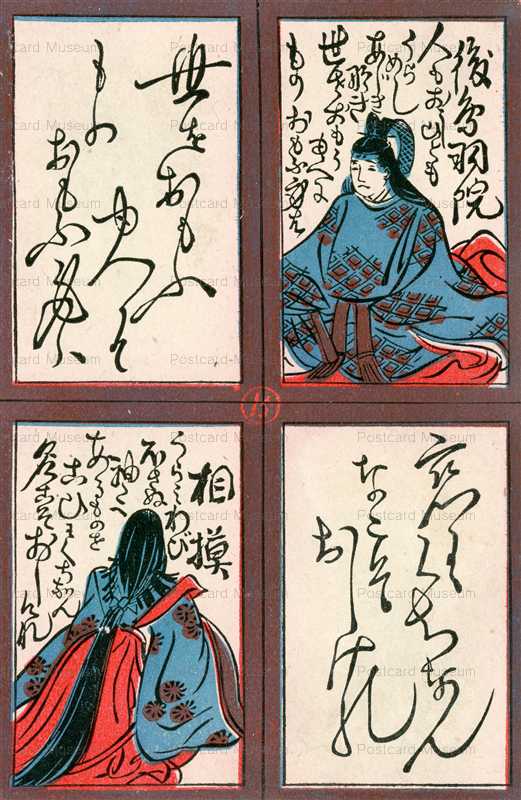 後鳥羽院
人もおしひとも
うらめし
あぢき
なき
世をおもふ
ゆへに
ものおもふ身は
世をおもふ
ゆへに
もの
おもふ身は
恋にくちなん
なこそ
おしけれ
相摸
うらみわび
ほさぬ
袖だに
あるものを
こひにくちなん
名こそおしけれ
Postcard Museum